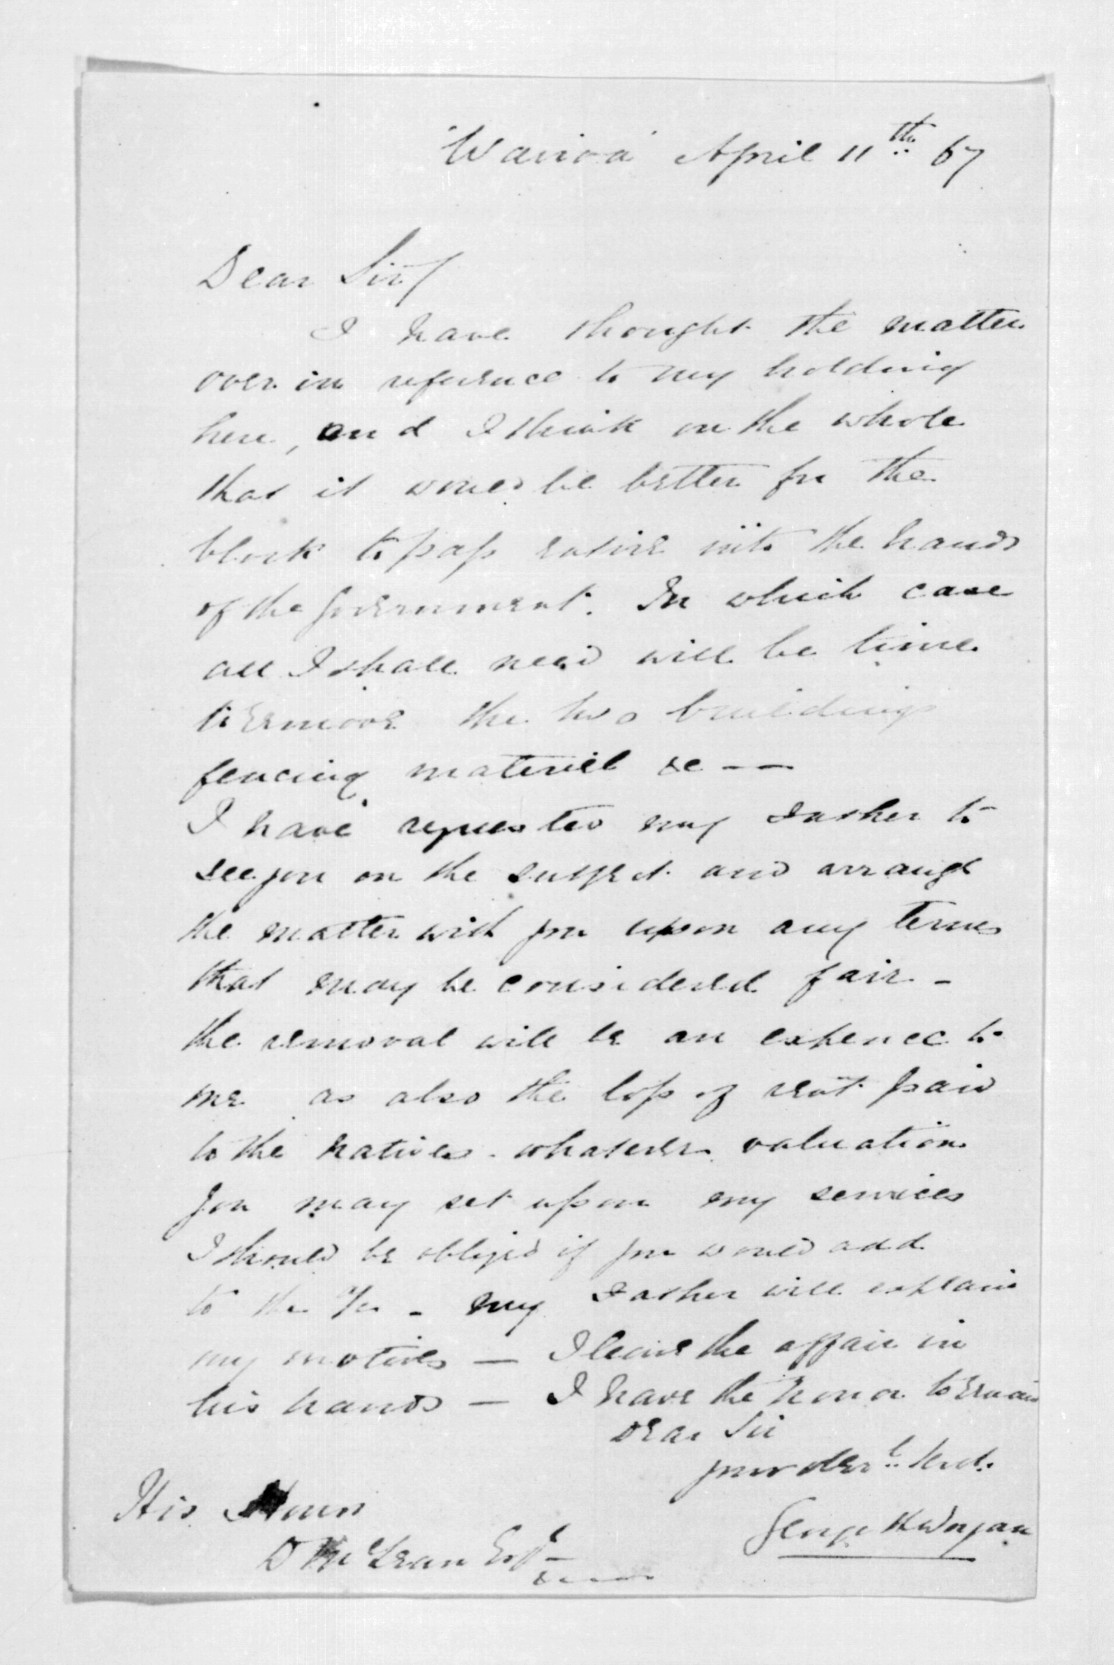 Wairoa April 11th 67
Dear Sir/
I have thought the matter
over in reference to my holding
here, and I think on the whole
that it would be better for the
block to pass entire into the hands
of the Government. In which case
all I shall need will be time
to remove the two buildings
fencing material &c — —
I have requested my Father to
see you on the subject and arrange
the matter with you upon any terms
that may be considered fair –
the removal will be an expence to
me as also the loss of rent paid
to the natives. whatever valuation
you may set upon my services
I should be obliged if you would add
to the – my Father will explain
my motives — I leave the affair in
his hands — I have the honor to remain
Dear Sir
your obdt. Servt.
George H Worgan
His Honor
D McLean Esqr
&c